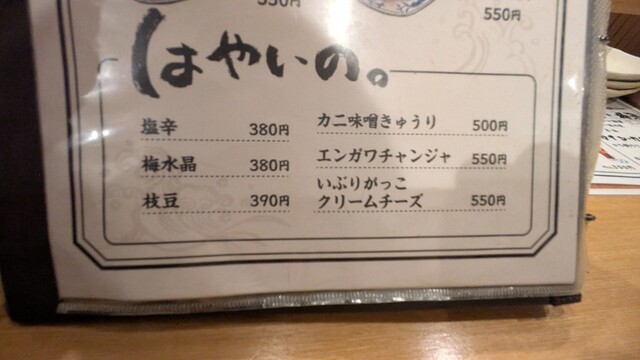 550円
550円
はやいの。
塩辛 380円
梅水晶 380円
枝豆 390円
カニ味噌きゅうり 500円
エンガワチャンジャ 550円
いぶりがっこ
クリームチーズ 550円